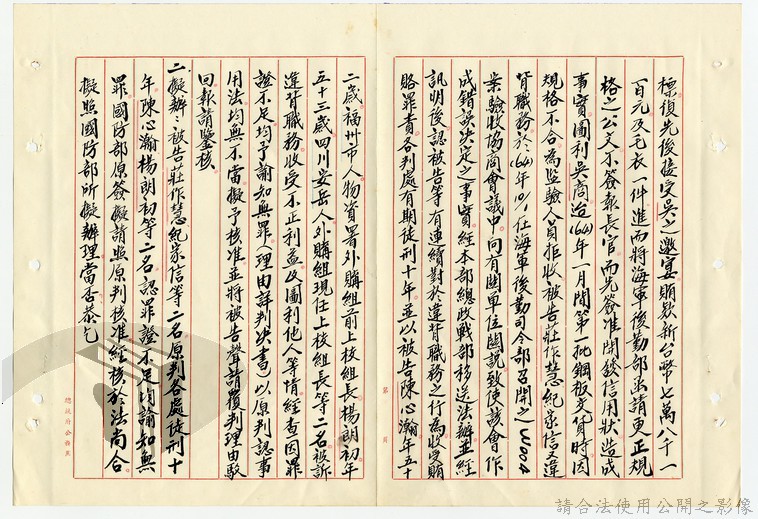 標復先後接受吳之邀宴賄欵新台幣七萬八千一
百元及毛衣一件進而將海軍後勤部函請更正規
格之公文不簽報長官而先簽准開發信用狀造成
事實圖利吳商迨(64)年一月間第一批鋼板交貨時因
規格不合為監驗人員拒收被告莊作慧紀家信又違
背職務於(64)年10/1在海軍後勤司令部召開之
案驗收協商會議中向有關單位關說致使該會作
成錯誤決定之事實經本部總政戰部移送法辦並經
訊明後認被告等有連續對於違背職務之行為收受賄
賂罪責各判處有期徒刑十年並以被告陳心瀚年五十
二歲福州市人物資署外購組前上校組長楊朗初年
五十三歲四川安岳人外購組現任上校組長等二名被訴
違背職務收受不正利益及圖利他人等情經查因罪
證不足均予諭知無罪理由詳判決書以原判認事
用法均無不當擬予核准並將被告聲請覆判理由駁
回報請鑒核
二、擬辦：被告莊作慧紀家信等二名原判各處徒刑十
年陳心瀚楊朗初等二名認罪證不足均諭知無
罪國防部原簽擬請照原判核准經核於法尚合
擬照國防部所擬辦理當否恭乞
總統府公務箋
第 頁
請合法使用公開之影像